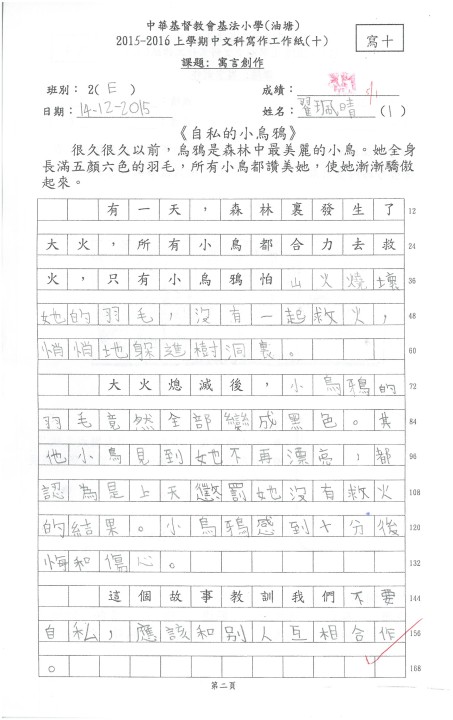 中華基督教會基法小學(油塘)
2015-2016上學期中文科寫作工作紙(十)
寫十
課題：寓言創作
班別： 2(E) 成績：
日期：14-12-2015 姓名：翟珮晴 (1)
《自私的小烏鴉》
很久很久以前，烏鴉是森林中最美麗的小鳥。她全身
長滿五顏六色的羽毛，所有小鳥都讚美她，使她漸漸驕傲
起來。
有一天，森林裏發生了 12
大火，所有小鳥都合力去救 24
火，只有小烏鴉怕山火燒壞 36
她的羽毛，沒有一起救火， 48
悄悄地躲進樹洞裏。 60
大火熄滅後，小烏鴉的 72
羽毛竟然全部變成黑色。其 84
他小鳥見到她不再漂亮，都 96
認為是上天懲罰她沒有救火 108
的結果。小烏鴉感到十分後 120
悔和傷心。 132
這個故事教訓我們不要 144
自私，應該和別人互相合作 156
。 168
第二頁